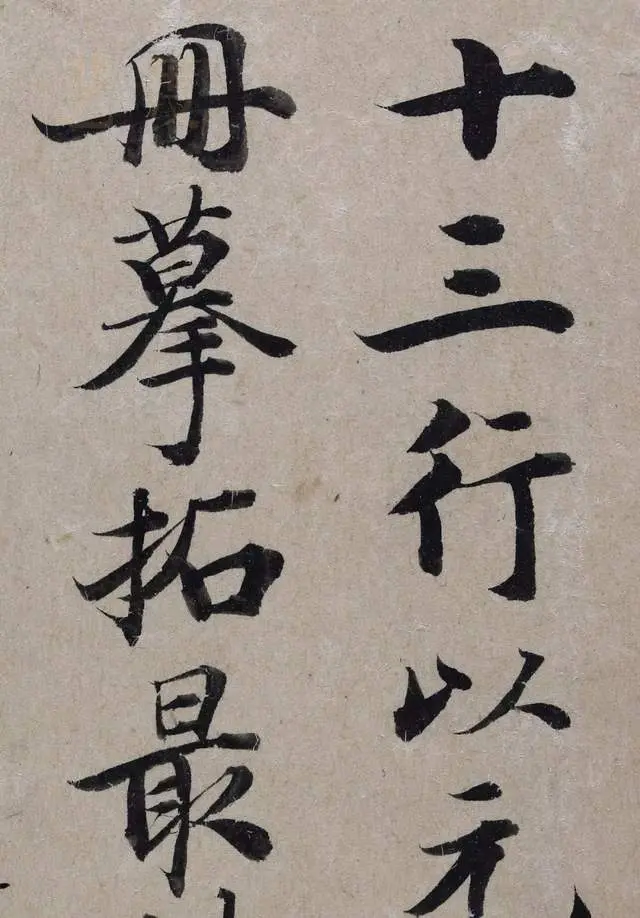 十三行以元
冊摹拓最